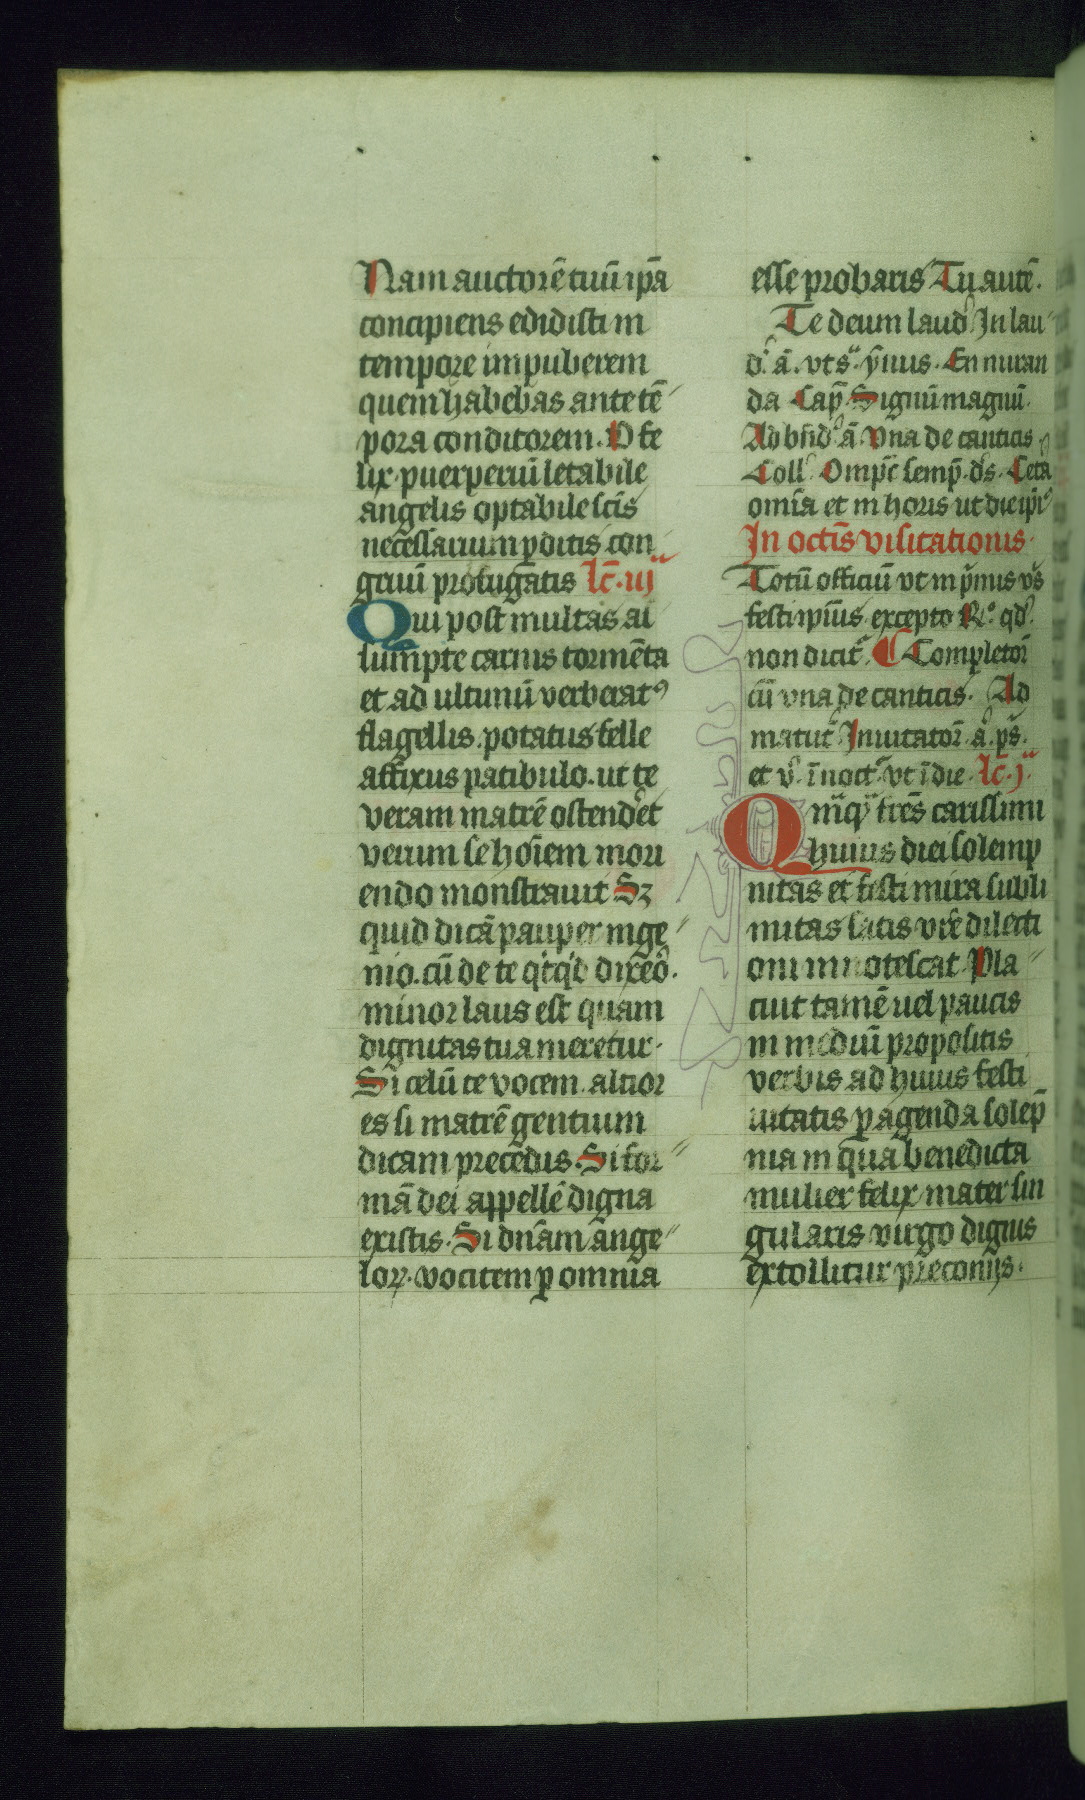 Nam auctorē tuū ip̄a
concipiens edidisti in
tempore impuberem
quem habebas ante tē
pora conditorem. O fe
lix puerperiū letabile
angelis optabile sc̄is
necessarium ꝑditis con
gruū profugatis lc̄. iij
Qui post multas as
sumpte carnis tormēta
et ad ultimū verberatꝰ
flagellis. potatus felle
affixus patibulo. ut te
veram matrē ostend̓et
verum se hoīem mori
endo monstrauit Sꝫ
quid dicā pauper inge
nio. cū de te qͥcqͥd dixeō.
minor laus est quam
dignitas tua meretur.
Si celū te vocem. altior
es si matrē gentium
dicam precedis. Si for
mā dei appellē digna
existis. Si dn̄am ange
loꝝ. vocitem ꝑ omnia
esse probaris Tu autē.
Te deum laud̓ In lau
d̓. ā. vt sͣ. ymus. En miran
da Cap̄. Signū magnū.
Ad bn̄d̓ ā Vna de canticis
Coll̓ Omp̄c semp̄. ds̄. Ceta
omīa et in horis ut die ip̄i
In octīs visitationis.
Totū officiū vt in p̄mis vs̄
festi ip̄ius excepto Rͦ. qd̓
non dicit̄. ¶ Completor̄
cū vna de canticis. Ad
matut̄ Inuitator̄. ā. ps̄.
et v̓. ī noct̄. vt ī die. lc̄. jͣ.
Qm̄qͥ frēs carissimi
huius diei solemp
nitas et festi mira subli
mitas satis vr̄e dilecti
oni innotescat Pla
cuit tamē uel paucis
in mediū propositis
verbis ad huius festi
uitatis ꝑagenda solēp
nia in qua benedicta
mulier felix mater sin
gularis virgo dignis
extollitur preconijs.